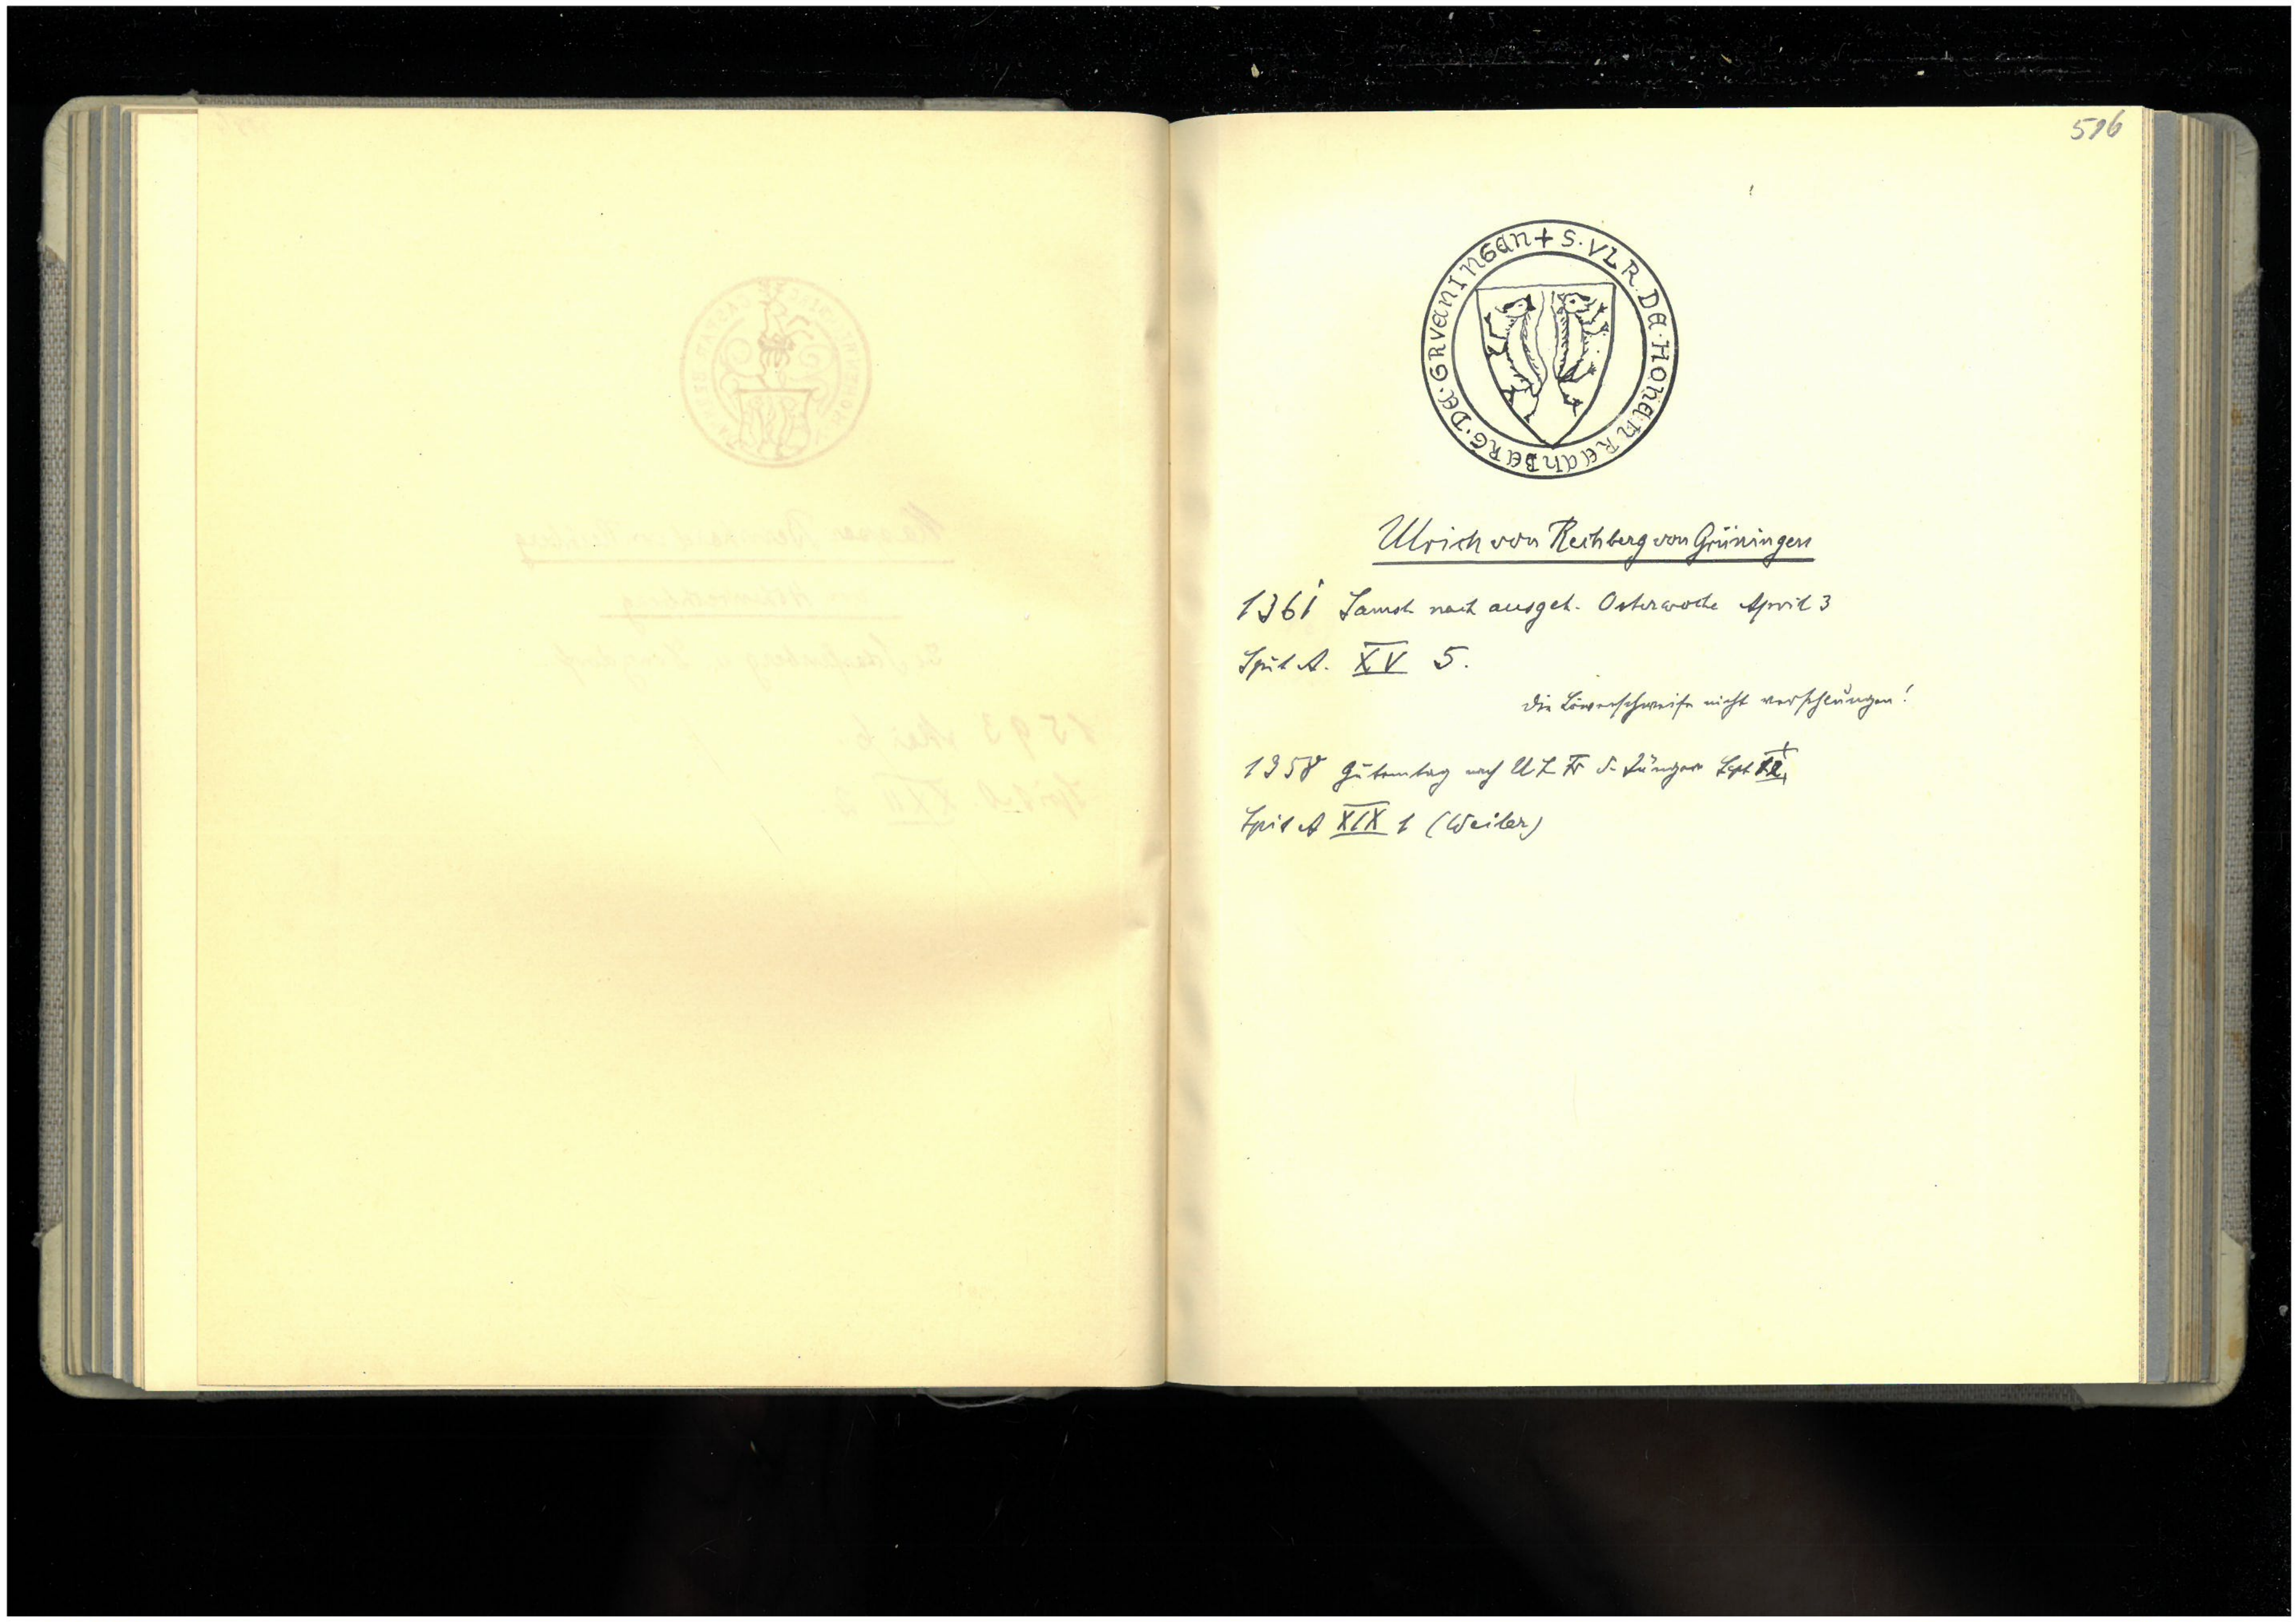 596
+ S. VLR. DE. HOHENRECHBERG. DE. GRVENINGEN
Ulrich von Rechberg von Grüningen
1361 Samst. nach ausgeh. Osterwoche April 3
Spit A. XV 5.
die Löwenschweife nicht verschlungen!
1358 Gutemtag nach U L Fr d. Jüngern Sept
Spit A XIX 1 (Weiler)